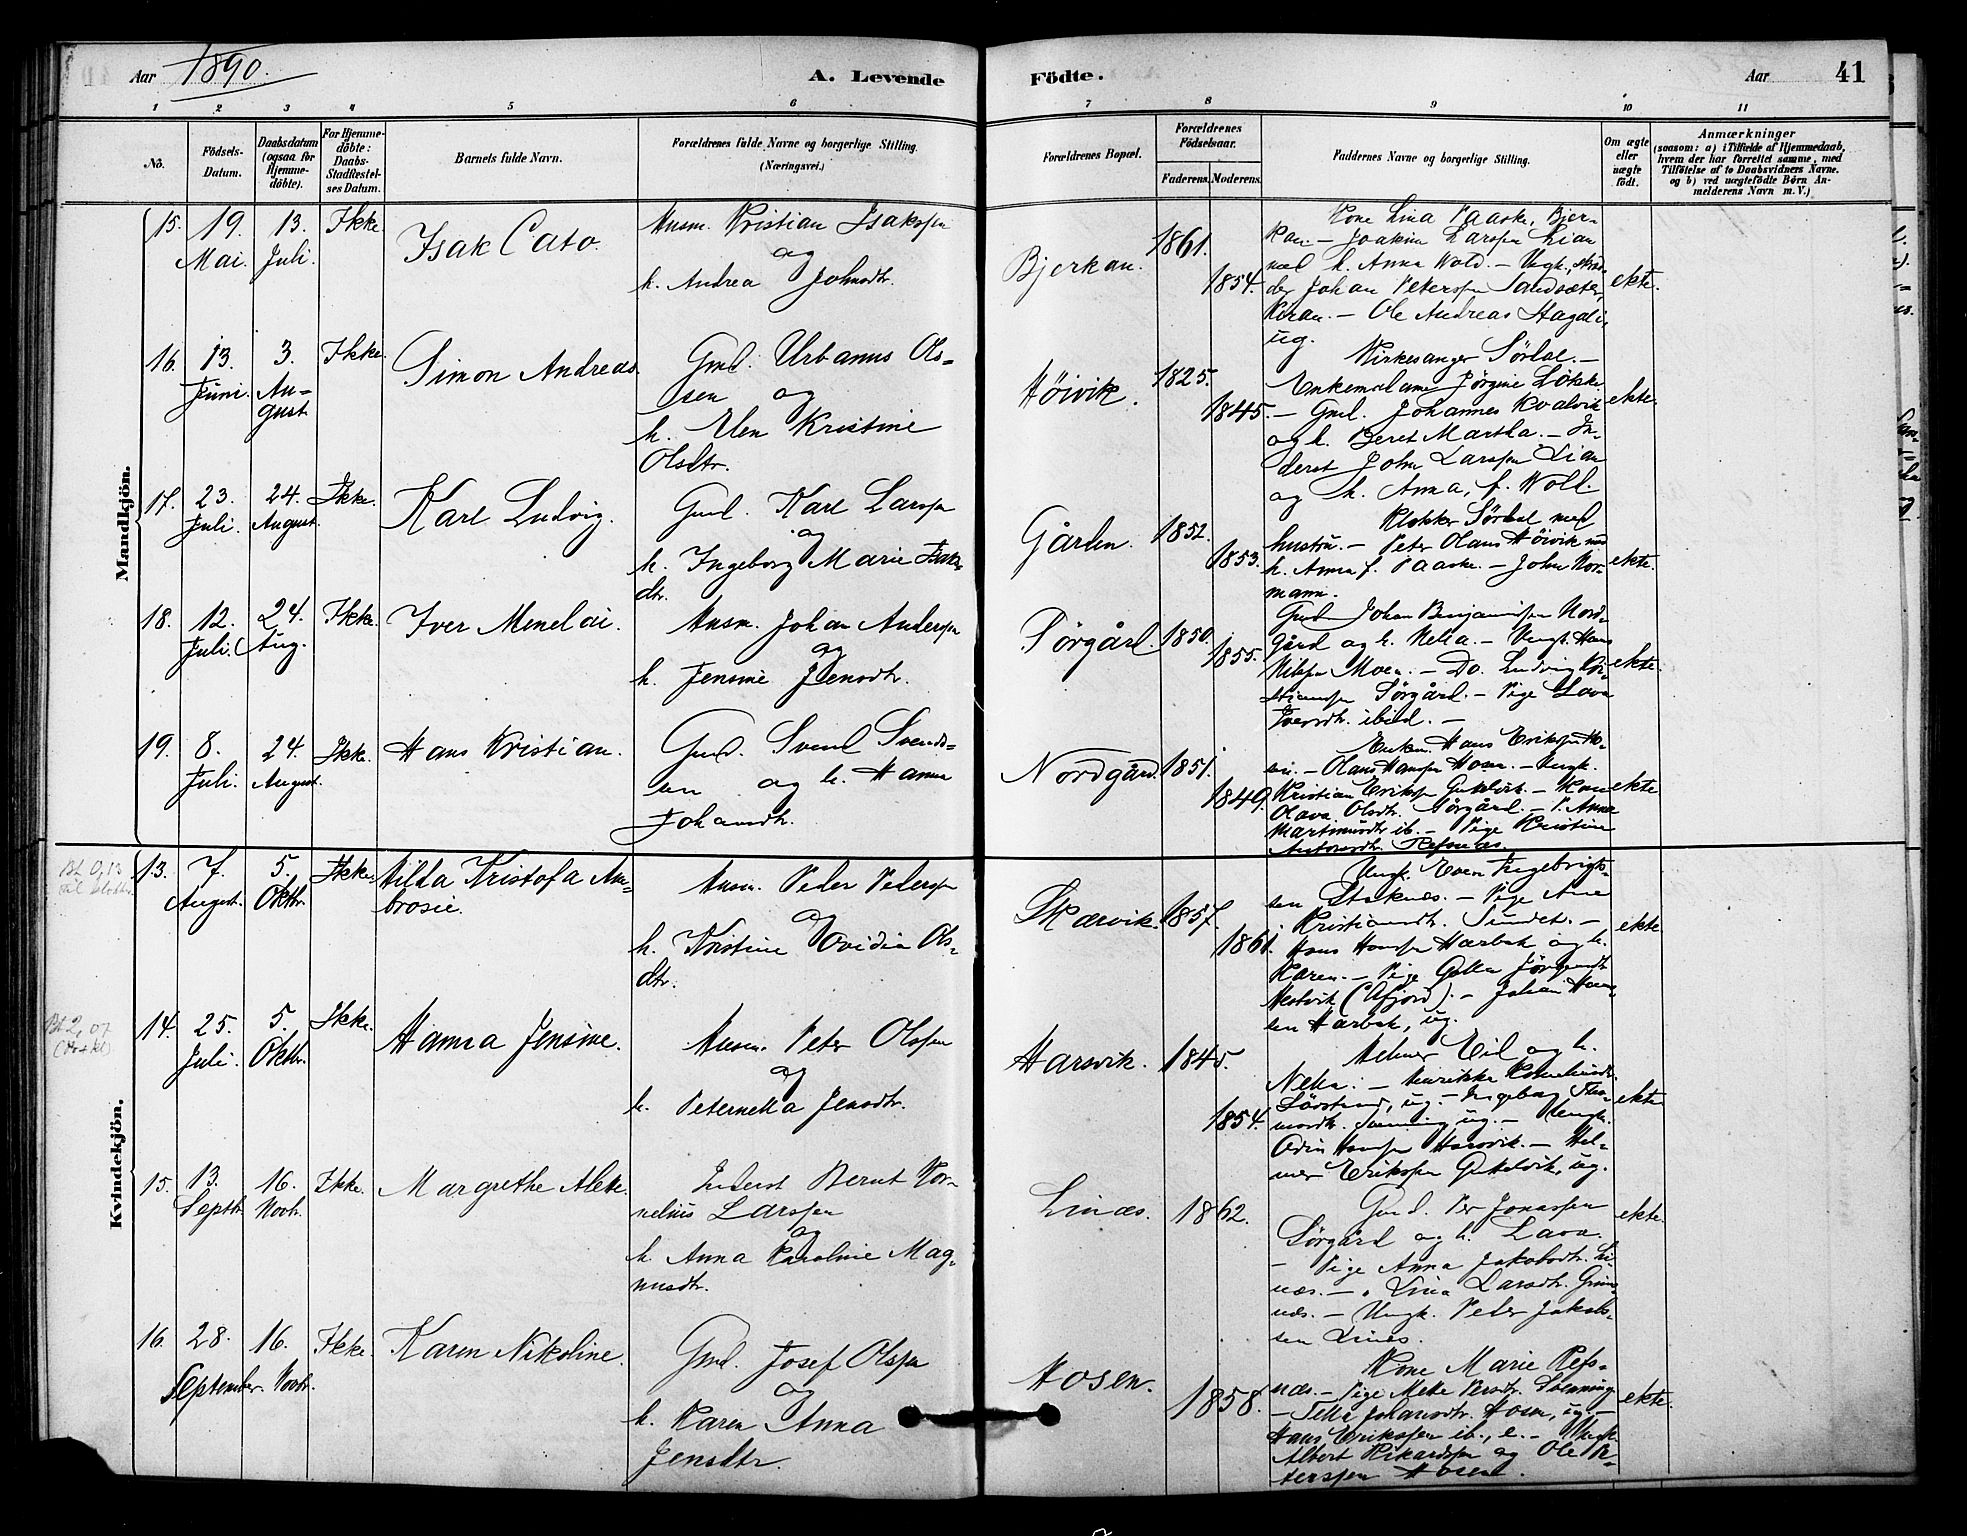 Aar 1890.
A. Levende Födte.
Aar 41
1 2 3 4 5 6 7 8 9 10 11
No.
Födsels-Datum.
Daabsdatum (ogsaa for Hjemme-döbte).
For Hjemme-döbte: Daabs-Stadfæstel-ses Datum.
Barnets fulde Navn.
Forældrenes fulde Navne og borgerlige Stilling. (Næringsvei.)
Forældrenes Bopæl.
Forældrenes Födselsaar.
Faderens. Moderens.
Faddernes Navne og borgerlige Stilling.
Om ægte eller uægte födt.
Anmærkninger
(saasom: a) i Tilfælde af Hjemmedaab, hvem der har forrettet samme, med Tilföielse af to Daabsvidners Navne. og b) ved uægtefödte Börn An-melderens Navn m. V.)
Mandkjön.
15. 19. Mai. 13. Juli. Ikke
Isak Cato.
Husm. Kristian Isakssen
og
h. Andrea Johnsdtr.
Bjerkan. 1861. 1854.
Kone Lina Paaske, Bjer-
kan. - Joakim Larssen Lian
med h. Anna Wold. - Ungk.,
der Johan Peterssen Sandsæter,
Kiran. - Ole Andreas Hagali,
ug.
ekte.
16. 13. Juni. 3. Au-gust. Ikke.
Simon Andreas.
Gmd. Urbanus Ols-
sen og
h. Elen Kristine
Olsdtr.
Höivik. 1825. 1845.
Kirkesanger Sördal. -
Enkemadame Jörgine Lökke.
- Gmd. Johannes Kvalvik
og h. Beret Martha. - In-
derst John Larssen Lian
og h. Anna, f. Woll
ekte.
17. 23. Juli. 24. August. Ikke.
Karl Ludvig.
Gmd. Karl Larssen
og
h. Ingeborg Marie Isaks-
dtr.
Gården. 1852. 1853.
Klokker Sördal med
hustru. - Peter Olaus Höivik med
h. Anna f. Paaske. - John Nor-
mann.
ekte.
18. 12. Juli. 24. Aug. Ikke.
Iver Menelai.
Husm. Johan Anderssen
og
h. Jensine Jensdtr.
Sörgård. 1850. 1855.
Gmd Johan Benjaminsen Nord-
gård og h. Nella. - Ungk. Hans
Nilssen Moen. - Do. Ludvig Kri-
stianssen Sörgård. - Pige Lava
Iversdtr. ibid. -
ekte.
19. 8. Juli. 24. August. Ikke.
Hans Kristian.
Gmd. Svend Svend-
sen og h. Hanna
Johansdtr.
Nordgård. 1851. 1849.
Enkem. Hans Erikssen Ho-
sen. - Olaus Hanssen Hosen. - Ungk.
Kristian Erikssen Gutelvik. - Kone
Olava Olsdtr. Sörgård. - P. Anna
Martinusdtr ib. - Pige Kristine
Antonsdtr. Refsnæs.
ekte
Kvindekjön.
13. 7. August. 5. Oktbr. Ikke.
Hilda Kristofa Am-
brosie.
Husm. Peder Pederssen
og
h. Kristine Ovidia Ols-
dtr.
Skarvik. 1857. 1861.
Ungk. Even Ingebrigt-
sen Stoknæs. - Pige Ane
Kristiansdtr. Sundet. -
Hans Hanssen Harbak og h.
Karen. - Pige Jörgensdtr
Nestvik (Åfjord). - Johan Han-
sen Harbak, ug.
ekte
14. 25. Juli. 5. Oktbr. Ikke.
Hanna Jensine.
Husm. Peter Olssen
og
h. Peternella Jensdtr.
Harsvik. 1845. 1854.
Helmer Eid og h.
Nella. - Henrikke
ug. - Ingeborg Tho-
masdtr. ug. - Ungk.
Odin Hanssen Harsvik. - Hel-
mer Erikssen Gutelvik, ug.
ekte
15. 13. Septbr. 16. Novbr. Ikke.
Margrethe Aleke.
Inderst Bernt Kor-
nelius Larssen
og
h. Anna Karoline Mag-
nusdtr.
Linæs. 1862.
Gmd. Per Jonassen
Sörgård og h. Lava.
- Pige Anna Jakobsdtr. Li-
næs. - " Lina Larsdtr. Grims-
næs. - Ungk. Peter Jakob-
sen Linæs.
ekte.
16. 28. September. 16. Novbr. Ikke.
Karen Nikoline.
Gmd. Josef Olssen
og
h. Karen Anna
Jensdtr.
Hosen. 1858.
Kone Marie Refs-
næs. - Pige Mette Persdtr. Svenning
- Tella Johansdtr. Hosen, ug. -
Hans Erikssen ib., e. - Ungk.
Albert Rikardssen og Ole P-
terssen Hosen.
ekte.